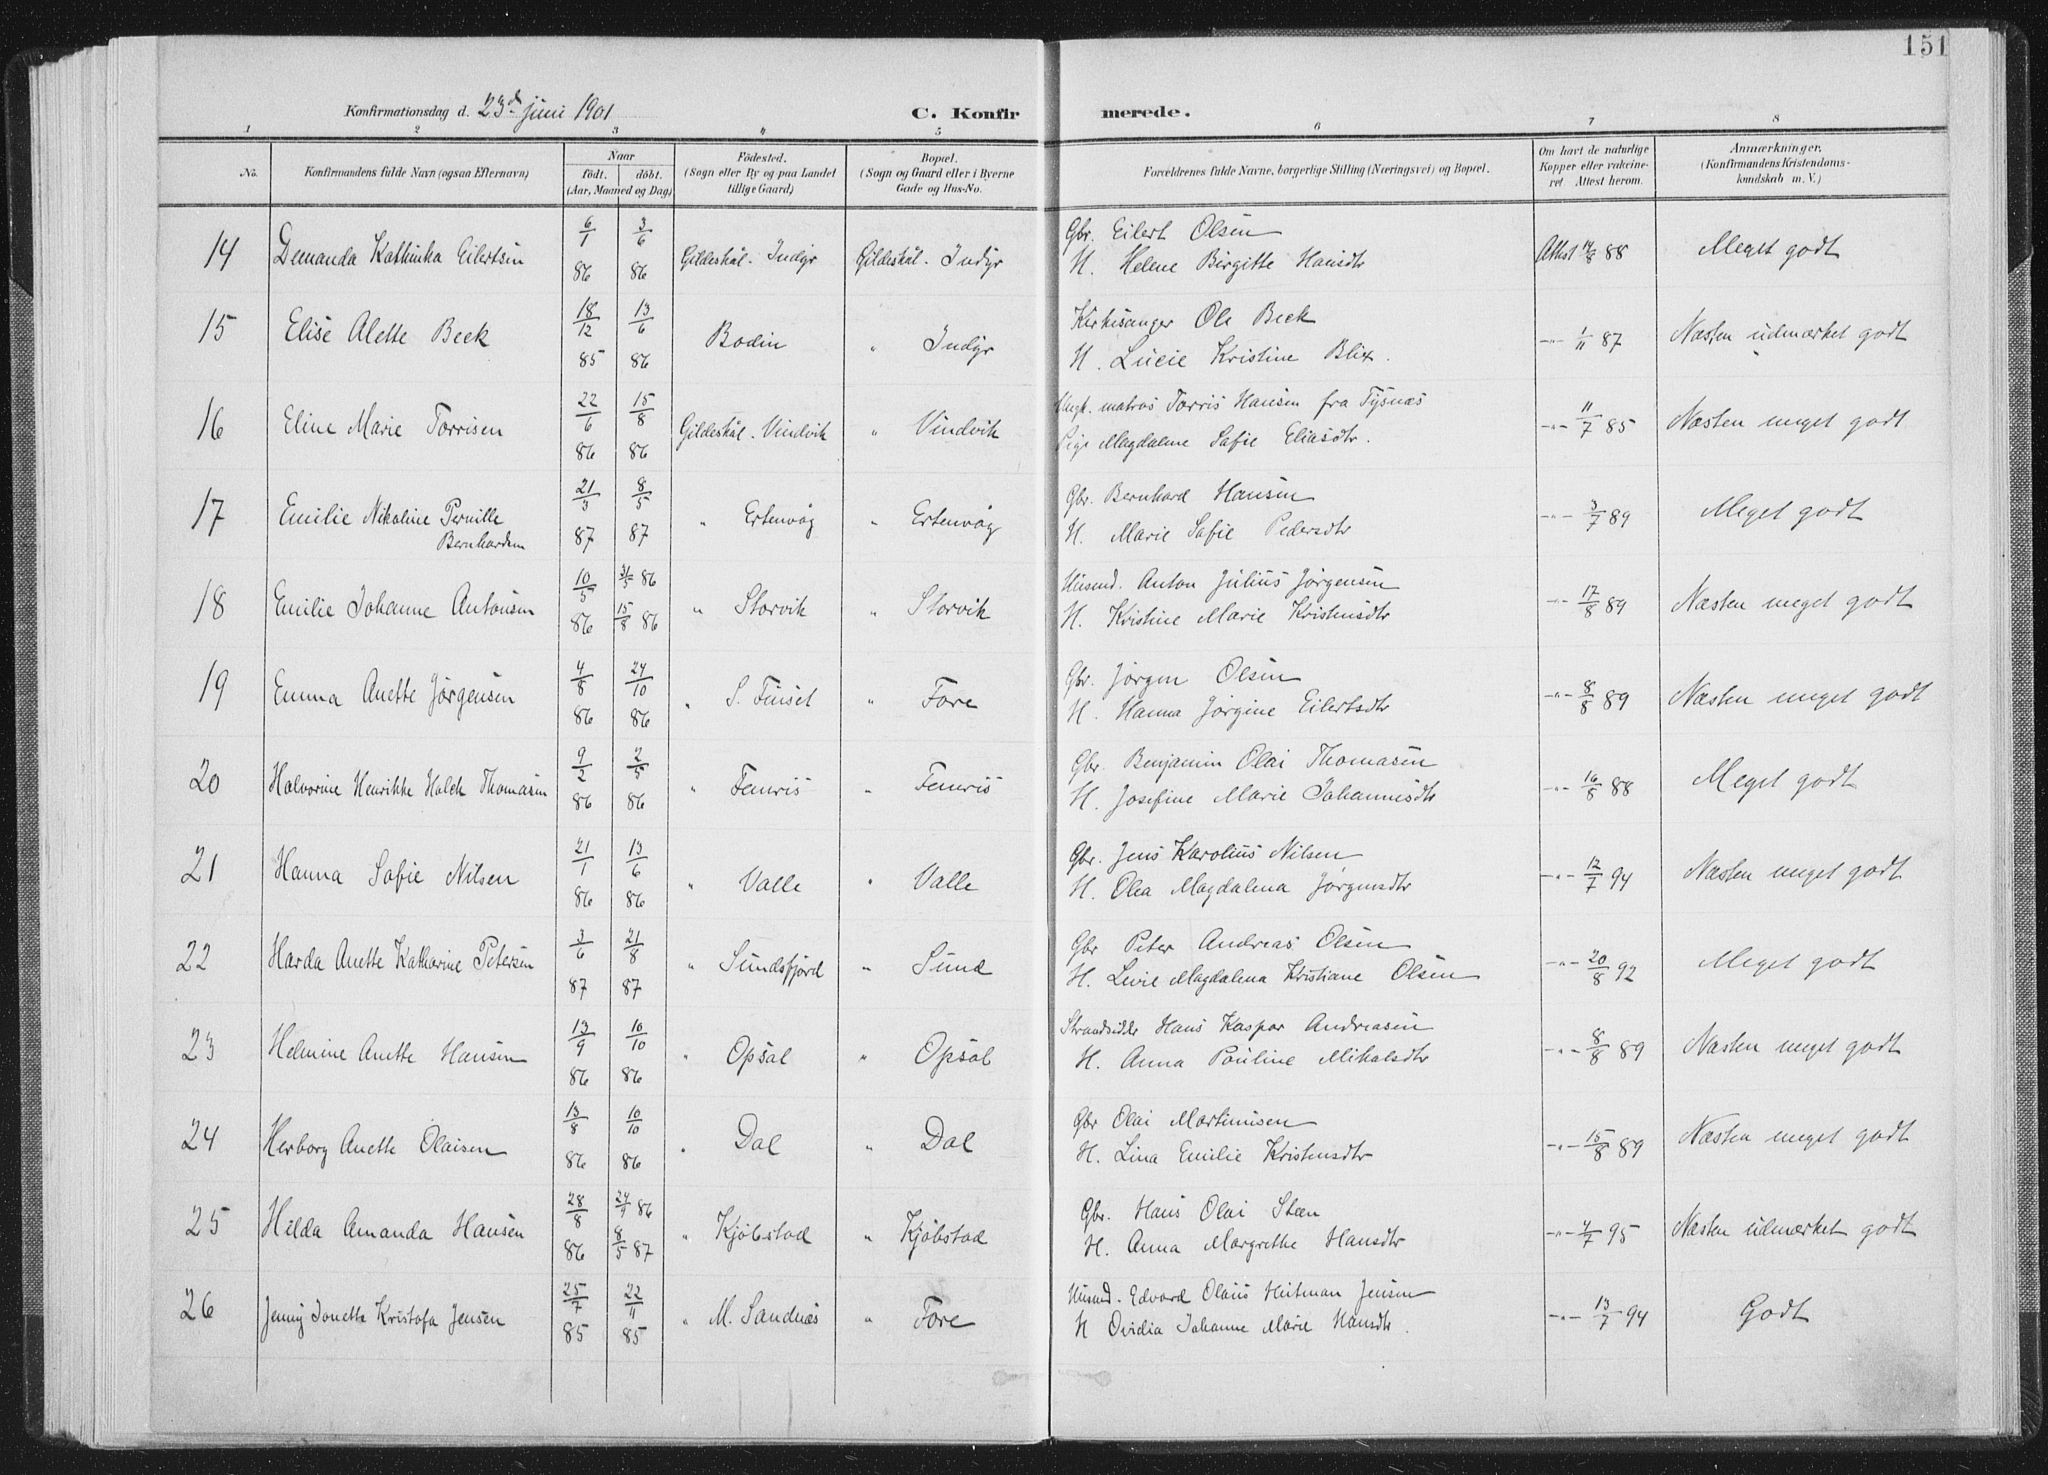 151
Konfirmationsdag d. 23d juni 1901
C. Konfirmerede.
1 2 3 4 5 6 7 8
No. | Konfirmandens fulde Navn (ogsaa Efternavn) | Naar født. døbt. (Aar, Maaned og Dag) | Fødested. (Sogn eller By og paa Landet tillige Gaard) | Bopæl. (Sogn og Gaard eller i Byerne Gade og Hus-No. | Forældrenes fulde Navne, borgerlige Stilling (Næringsvei) og Bopæl. | Om havt de naturlige Kopper eller vakcineret. Attest herom. | Anmærkninger. (Konfirmandens Kristendomskundskab m. V.)
14 Demanda Kathinka Eilertsen 6/1 86 3/6 86 Gildeskål. Indyr Gildeskål. Indyr Gbr. Eilert Olsen
H. Helene Birgitte Hansdtr Attest 14/8 88 Meget godt
15 Elise Alette Beck 18/12 85 13/6 86 Bodin " Indyr Kirkesanger Ole Beck
H. Lucie Kristine Blix. -"- 1/11 87 Næsten udmærket godt
16 Eline Marie Torrisen 22/6 86 15/8 86 Gildeskål. Vindvik " Vindvik Ungk. matros Torris Hansen fra Tysnæs
Pige Magdalene Safie Eliasdtr. -"- 11/7 85 Næsten meget godt
17 Emilie Nikoline Pernille Bernhardsen 21/3 87 8/5 87 " Ertenvåg " Ertenvåg Gbr. Bernhard Hansen
H. Marie Safie Pedersdtr -"- 3/7 89 Meget godt
18 Emilie Johanne Antonsen 10/5 86 31/5 86 15/8 86 " Storvik " Storvik Husmd. Anton Julius Jørgensen
H. Kristine Marie Kristensdtr -"- 17/8 89 Næsten meget godt
19 Emma Anette Jørgensen 4/8 86 24/10 86 " S. Finset " Fore Gbr. Jørgen Olsen
H. Hanna Jørgine Eilertsdtr -"- 8/8 89 Næsten meget godt
20 Halvorine Henrikke Holck Thomasen 9/2 86 2/5 86 " Femris " Femris Gbr. Benjamin Olai Thomasen
H. Josefine Marie Johannesdtr -"- 16/8 88 Meget godt
21 Hanna Safie Nilsen 21/1 86 13/6 86 " Valle " Valle Gbr. Jens Karolius Nilsen
H. Olea Magdalena Jørgensdtr -"- 12/7 94 Næsten meget godt
22 Harda Anette Katharine Petersen 3/6 87 21/8 87 " Sundsfjord " Sund Gbr Peter Andreas Olsen
H. Levie Magdalena Kristiane Olsen -"- 20/8 92 Meget godt
23 Helmine Anette Hansen 13/9 86 10/10 86 " Opsal " Opsal Strandsidder Hans Kaspar Andreasen
H. Anna Pauline Mikalsdtr -"- 8/8 89 Næsten meget godt
24 Herborg Anette Olaisen 13/8 86 10/10 86 " Dal " Dal Gbr Olai Martinusen
H. Lina Emilie Kristensdtr -"- 15/8 89 Næsten meget godt
25 Hilda Amanda Hansen 28/8 86 24/9 86 8/5 87 " Kjøbstad " Kjøbstad Gbr. Hans Olai Steen
H. Anna Margrethe Hansdtr -"- 4/7 95 Næsten udmærket godt
26 Jenny Jonette Kristofa Jensen 25/7 85 22/11 85 " M. Sandnæs " Fore Husmd. Edvard Olaus Heitman Jensen
H Ovidia Johanne Marie Hansdtr. -"- 13/7 94 Godt